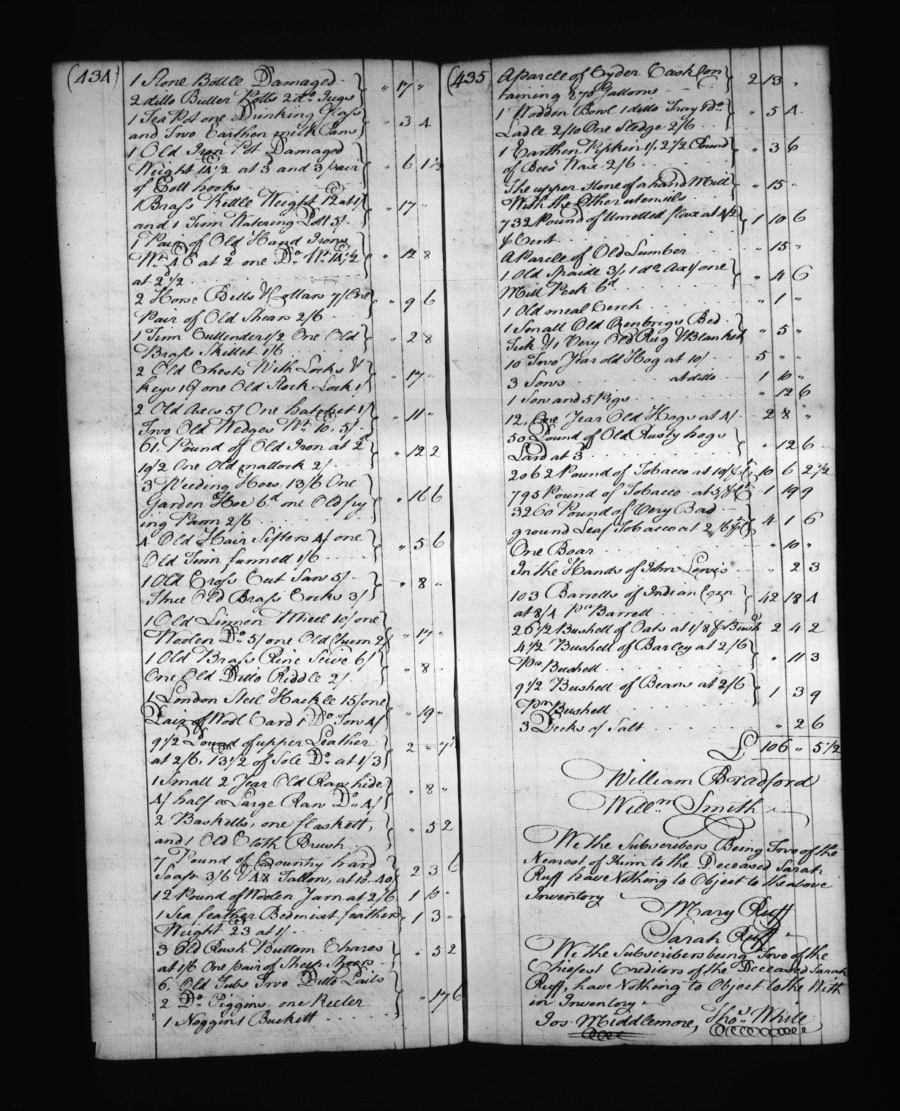 (434)
1 Stone Bottle Damaged
2 ditto Butter Potts 2 do. Jugs } " 17 "
1 Tea Pot one Drinking Glass
and Two Earthen milk Pans } " 3 4
1 Old Iron Pot Damaged
Weight 14 1/2 at 3 and 3 pair } " 6 1 1/2
of Pott hooks
1 Brass Kettle Weight 12 at 1/
and 1 Tinn Watering Pott 5/ } " 17 "
1 Pair of Old Hand Irons
Wt. 46 at 2d one Do. Wt. 14 1/2 } " 12 8
at 2 1/2
2 Horse Bells & Collars 7/ One
Pair of Old Shears 2/6 } " 9 6
1 Tinn Cullender 1/2 One Old
Brass Skillet 1/6 } " 2 8
2 Old Chests With Locks &
Keys 16/ one Old Stock Lock 1/ } " 17 "
2 Old Axes 5/ One hatchet 1/
Two Old Wedges Wt. 10. 5/ } " 11 "
61. Pound of Old Iron at 2d
10/2 One Old mattock 2/ } " 12 2
3 Weeding Hoes 13/6 One
Garden Hoe 6d one Old fry
ing Pann 2/6 } " 16 6
4 Old Hair Sifters 4/ one
Old Tinn funnell 1/6 } " 5 6
1 Old Cross Cut Saw 5/
Three Old Brass Cocks 3/ } " 8 "
1 Old Linnen Wheel 10/ one
Woolen Do. 5/ one Old Churn 2/ } " 17 "
1 Old Brass Rine Seive 6/
One Old Ditto Riddle 2/ } " 8 "
1 London Steel Hackle 15/ one
Pair of Wool Card 1 Do. Tow 4/ } " 19 "
9 1/2 Pound of upper Leather
at 2/6, 13 1/2 of Sole Do. at 1/3 } 2 " 7 1/2
1 Small 2 Year Old Raw hide
4/ half a Large Raw Do. 4/ } " 8 "
2 Basketts, one flaskett,
and 1 Old Cloth Brush } " 5 2
7 Pound of Country hard
Soap 3/6 & 48 Tallow, at 10d 40/ } 2 3 6
12 Pound of Woolen Yarn at 2/6 1 10 "
1 Sea feather Bed mixt feathers
Weight 23 at 1/ } 1 3 "
3 Old Rush Buttom Chares
at 1/6 One pair of Sheep Shears } " 5 2
6. Old Tubs Two Ditto Pails
2 Do. Piggins one Keeler } " 17 6
1 Noggin 1 Buckett
(435)
A parcle of Cyder Cask Con
taining 270 Gallons } 2 13 "
1 Wodden Bowl 1 ditto Tray & Do.
Ladle 2/10 One Sledge 2/6 } " 5 4
1 Earthen Pipken 1/. 2 1/2 Pound
of Bees Wax 2/6 } " 3 6
The upper Stone of a hand Mill
With the Other utensils } " 15 "
732 Pound of Unrotted flax at 4/2
P Cent } 1 10 6
A Parcle of Old Lumber " 15 "
1 Old Spaide 3/. 1 do. Axe 1/ one
Mill Peck 6d } " 4 6
1 Old meal Cerch " 1 "
1 Small Old Ozenbrigs Bed
Tick 4/ 1 Very Old Rug & Blanket } " 5 "
10 Two Year old Hog at 10/ 5 " "
3 Sows at ditto 1 10 "
1 Sow and 5 Pigs " 12 6
12. One Year Old Hogs at 4/ 2 8 "
50 Pound of Old Rusty hogs
Lard at 3d } " 12 6
2062 Pound of Tobacco at 10/ P Ct. 10 6 2 1/2
795 Pound of Tobacco at 5/ P Ct. 1 19 9
3260 Pound of Very Bad
ground Leaf Tobacco at 2/6 P Ct } 4 1 6
One Boar " 10 "
In the Hands of John Lewis " 2 3
103 Barrells of Indian Corn
at 8/4 Pr. Barrell } 42 18 4
26 1/2 Bushell of Oats at 1/8 P Bush 2 4 2
4 1/2 Bushell of Barley at 2/6
Pr. Bushell } " 11 3
9 1/2 Bushell of Beans at 2/6
Pr. Bushell } 1 3 9
3 Pecks of Salt " 2 6
£ 106 " 5 1/2
William Bradford
Willm. Smith
We the Subscribers Being Two of the
Nearest of Kinn to the Deceased Sarah
Ruff have Nothing to Object to the above
Inventory
Mary Ruff
Sarah Ruff
We the Subscribers being Two of the
Chiefest Creditors of the Deceased Sarah
Ruff, have Nothing to Object to the With
in Inventory
Jos. Middlemore, Thos. White